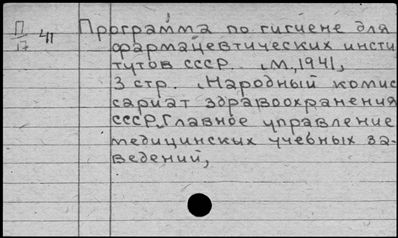 П/17 41 Программа по гигиене для
фармацевтических инсти
тутов СССР. М., 1941,
3 стр. Народный комис
сариат здравоохранения
СССР, Главное управление
медицинских учебных за-
ведений,